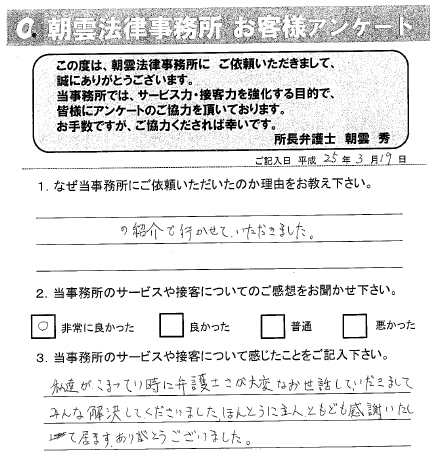 朝雲法律事務所 お客様アンケート
この度は、朝雲法律事務所に ご依頼いただきまして、
誠にありがとうございます。
当事務所では、サービス力・接客力を強化する目的で、
皆様にアンケートのご協力を頂いております。
お手数ですが、ご協力くだされば幸いです。
所長弁護士 朝雲 秀
ご記入日 平成 25 年 3 月 19 日
1. なぜ当事務所にご依頼いただいたのか理由をお教え下さい。
の紹介で行かせていただきました。
2. 当事務所のサービスや接客についてのご感想をお聞かせ下さい。
○ 非常に良かった 良かった 普通 悪かった
3. 当事務所のサービスや接客について感じたことをご記入下さい。
私達が、こまってい時に弁護士さが大変なお世話していただきまして
みんな解決してくださいました、ほんとうに主人、ともども感謝いたし
て居ます、ありがとうございました。